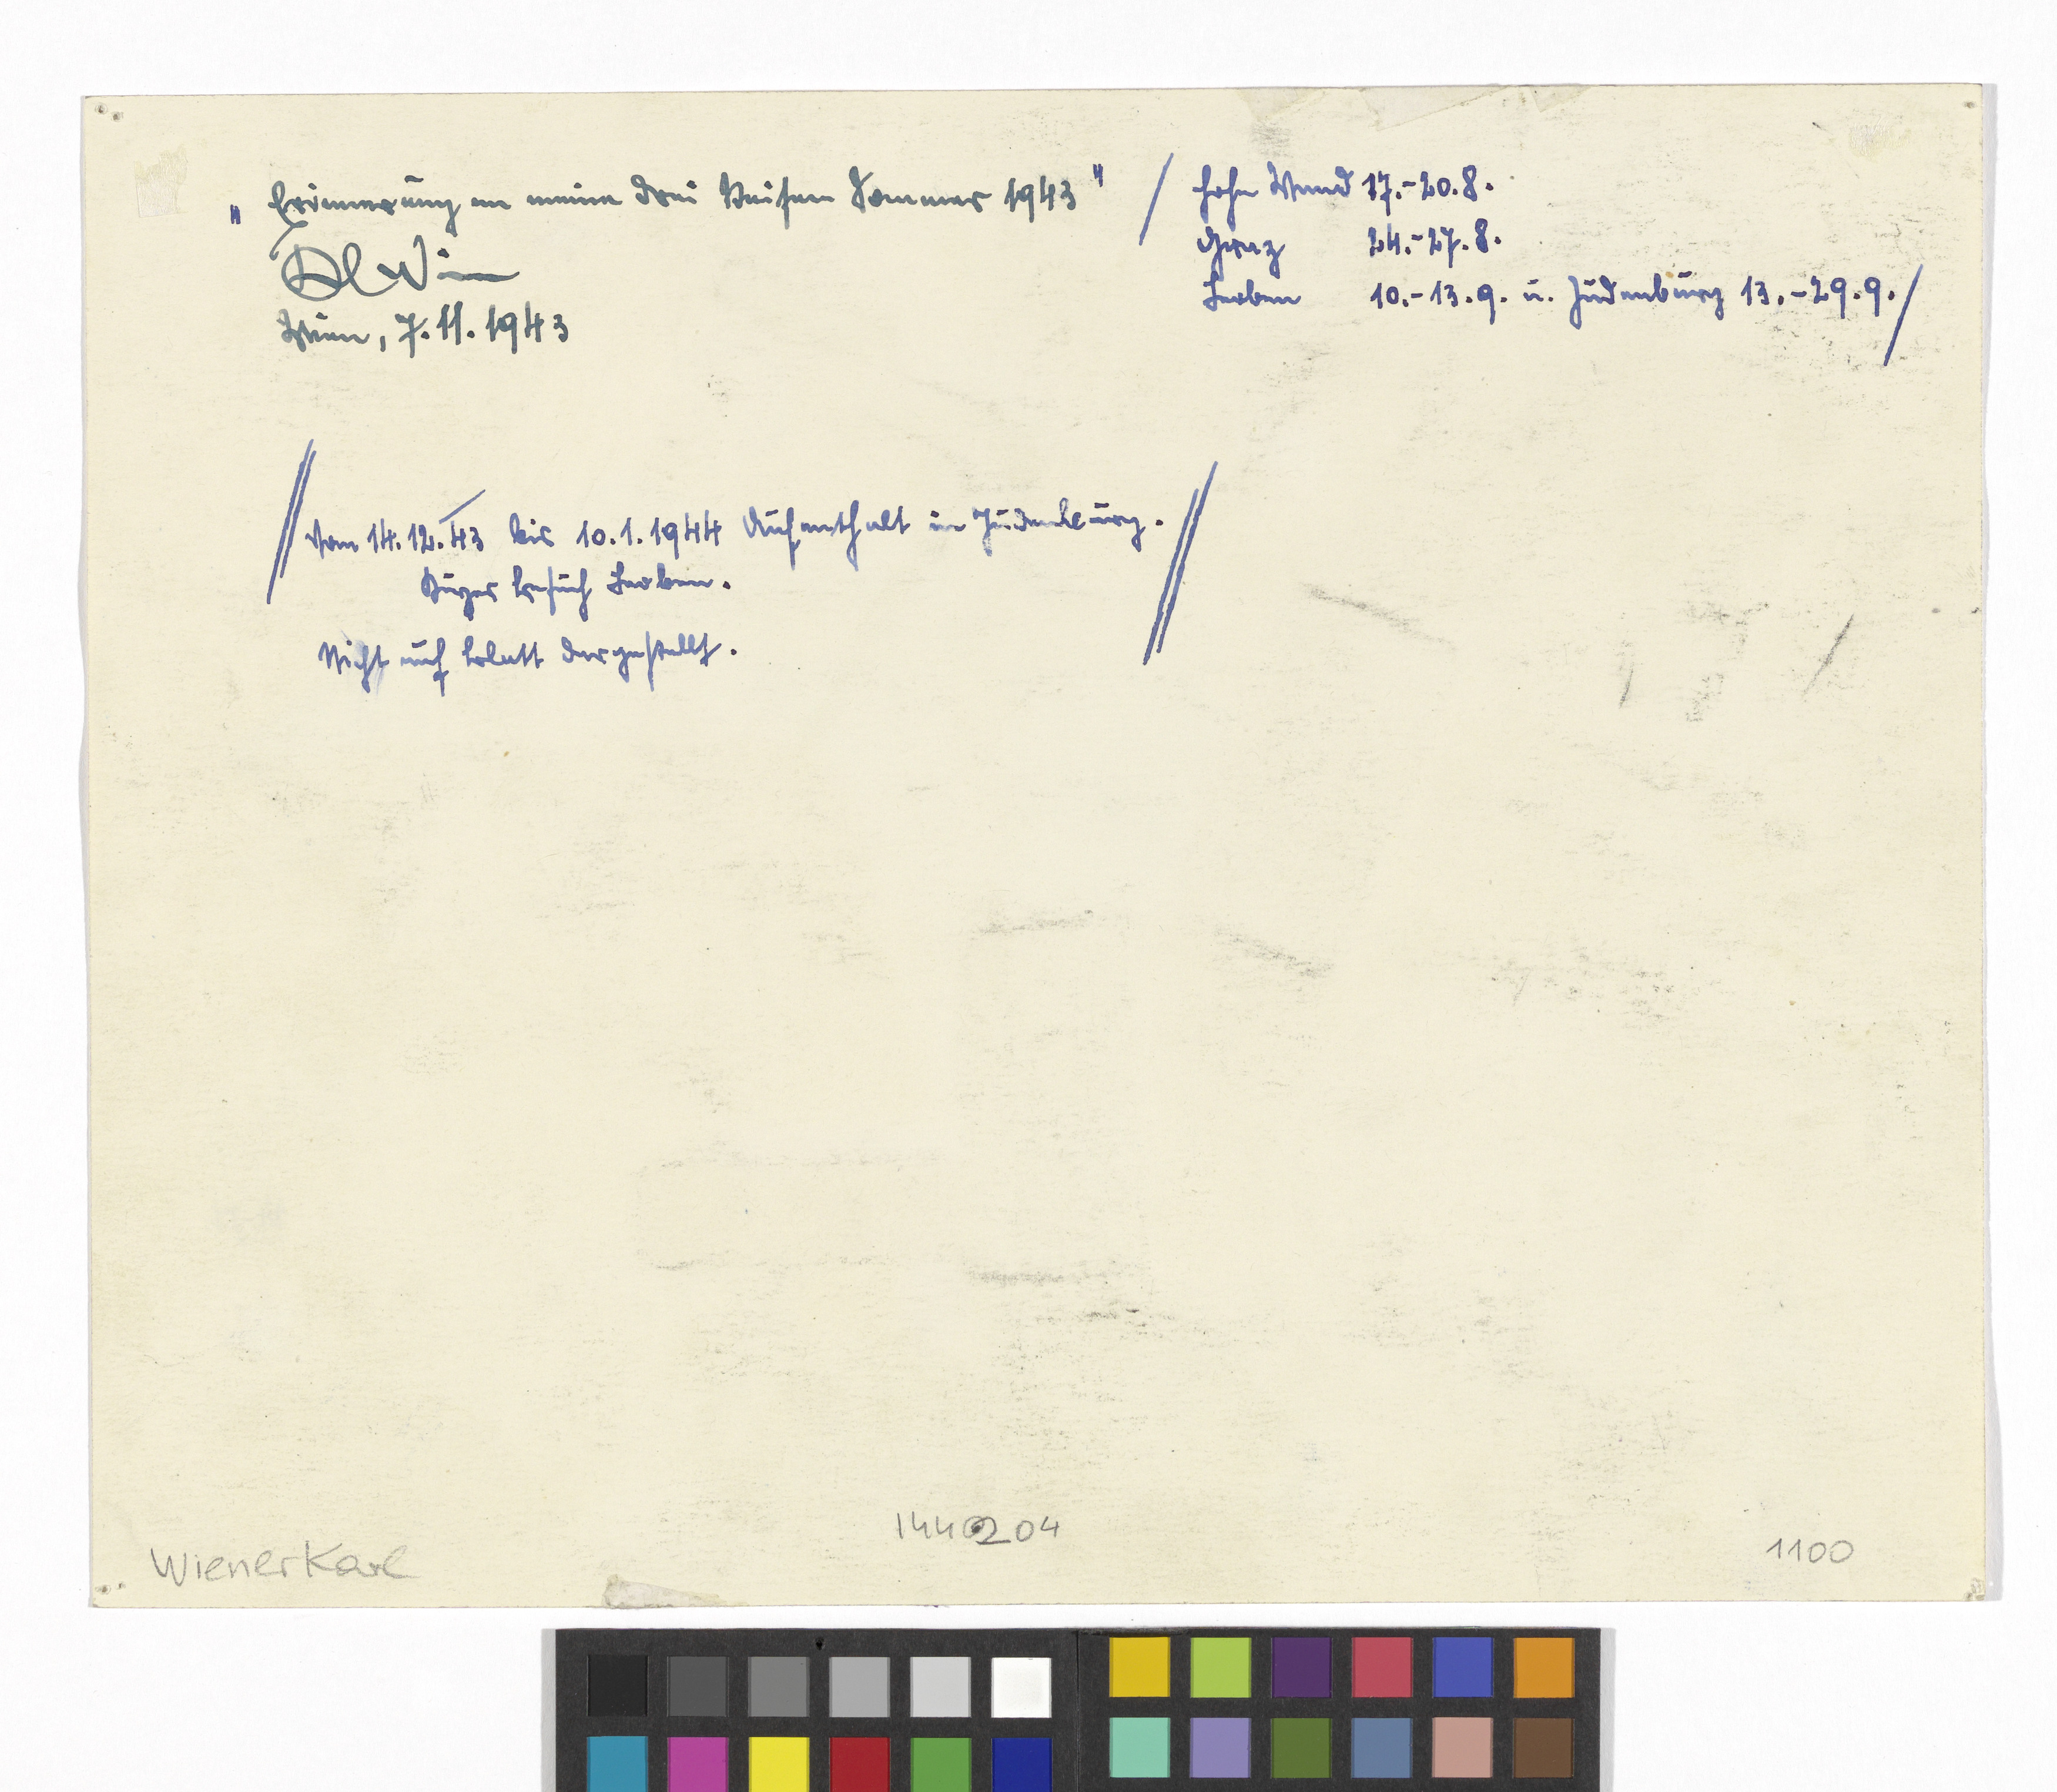 "Erinnerung an meine drei Reisen Sommer 1943"
Wien, 7.11.1943
/ Hohe Wand 17.-20.8.
Graz 24.-27.8.
Leoben 10.-13.9. u. Judenburg 13.-29.9. /
// Vom 14.12.43 bis 10.1.1944 Aufenthalt in Judenburg. //
Kurzer Besuch Leoben.
Nicht auf Blatt dargestellt.
Wiener Karl
1100